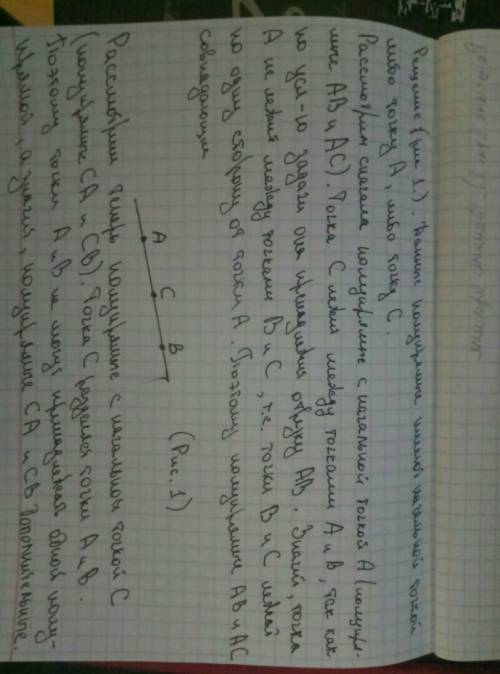 Решение (рис 1.). Данные полупрямые имеют начальной точкой
либо точку А, либо точку С.
Рассмотрим сначала полупрямые с начальной точкой А (полупря-
мые АВ и АС). Точка С лежит между точками А и В, так как
по усл-ю задачи она принадлежит отрезку АВ. Значит, точка
А не лежит между точками В и С, т.е. точки В и С лежат
по одну сторону от точки А. Поэтому полупрямые АВ и АС
совпадающие
А
С
В
(Рис. 1)
Рассмотрим теперь полупрямые с начальной точкой С
(полупрямые СА и СВ). Точка С разделяет точки А и В.
Поэтому точки А и В не могут принадлежать одной полу-
прямой, а значит, полупрямые СА и СВ дополнительные.